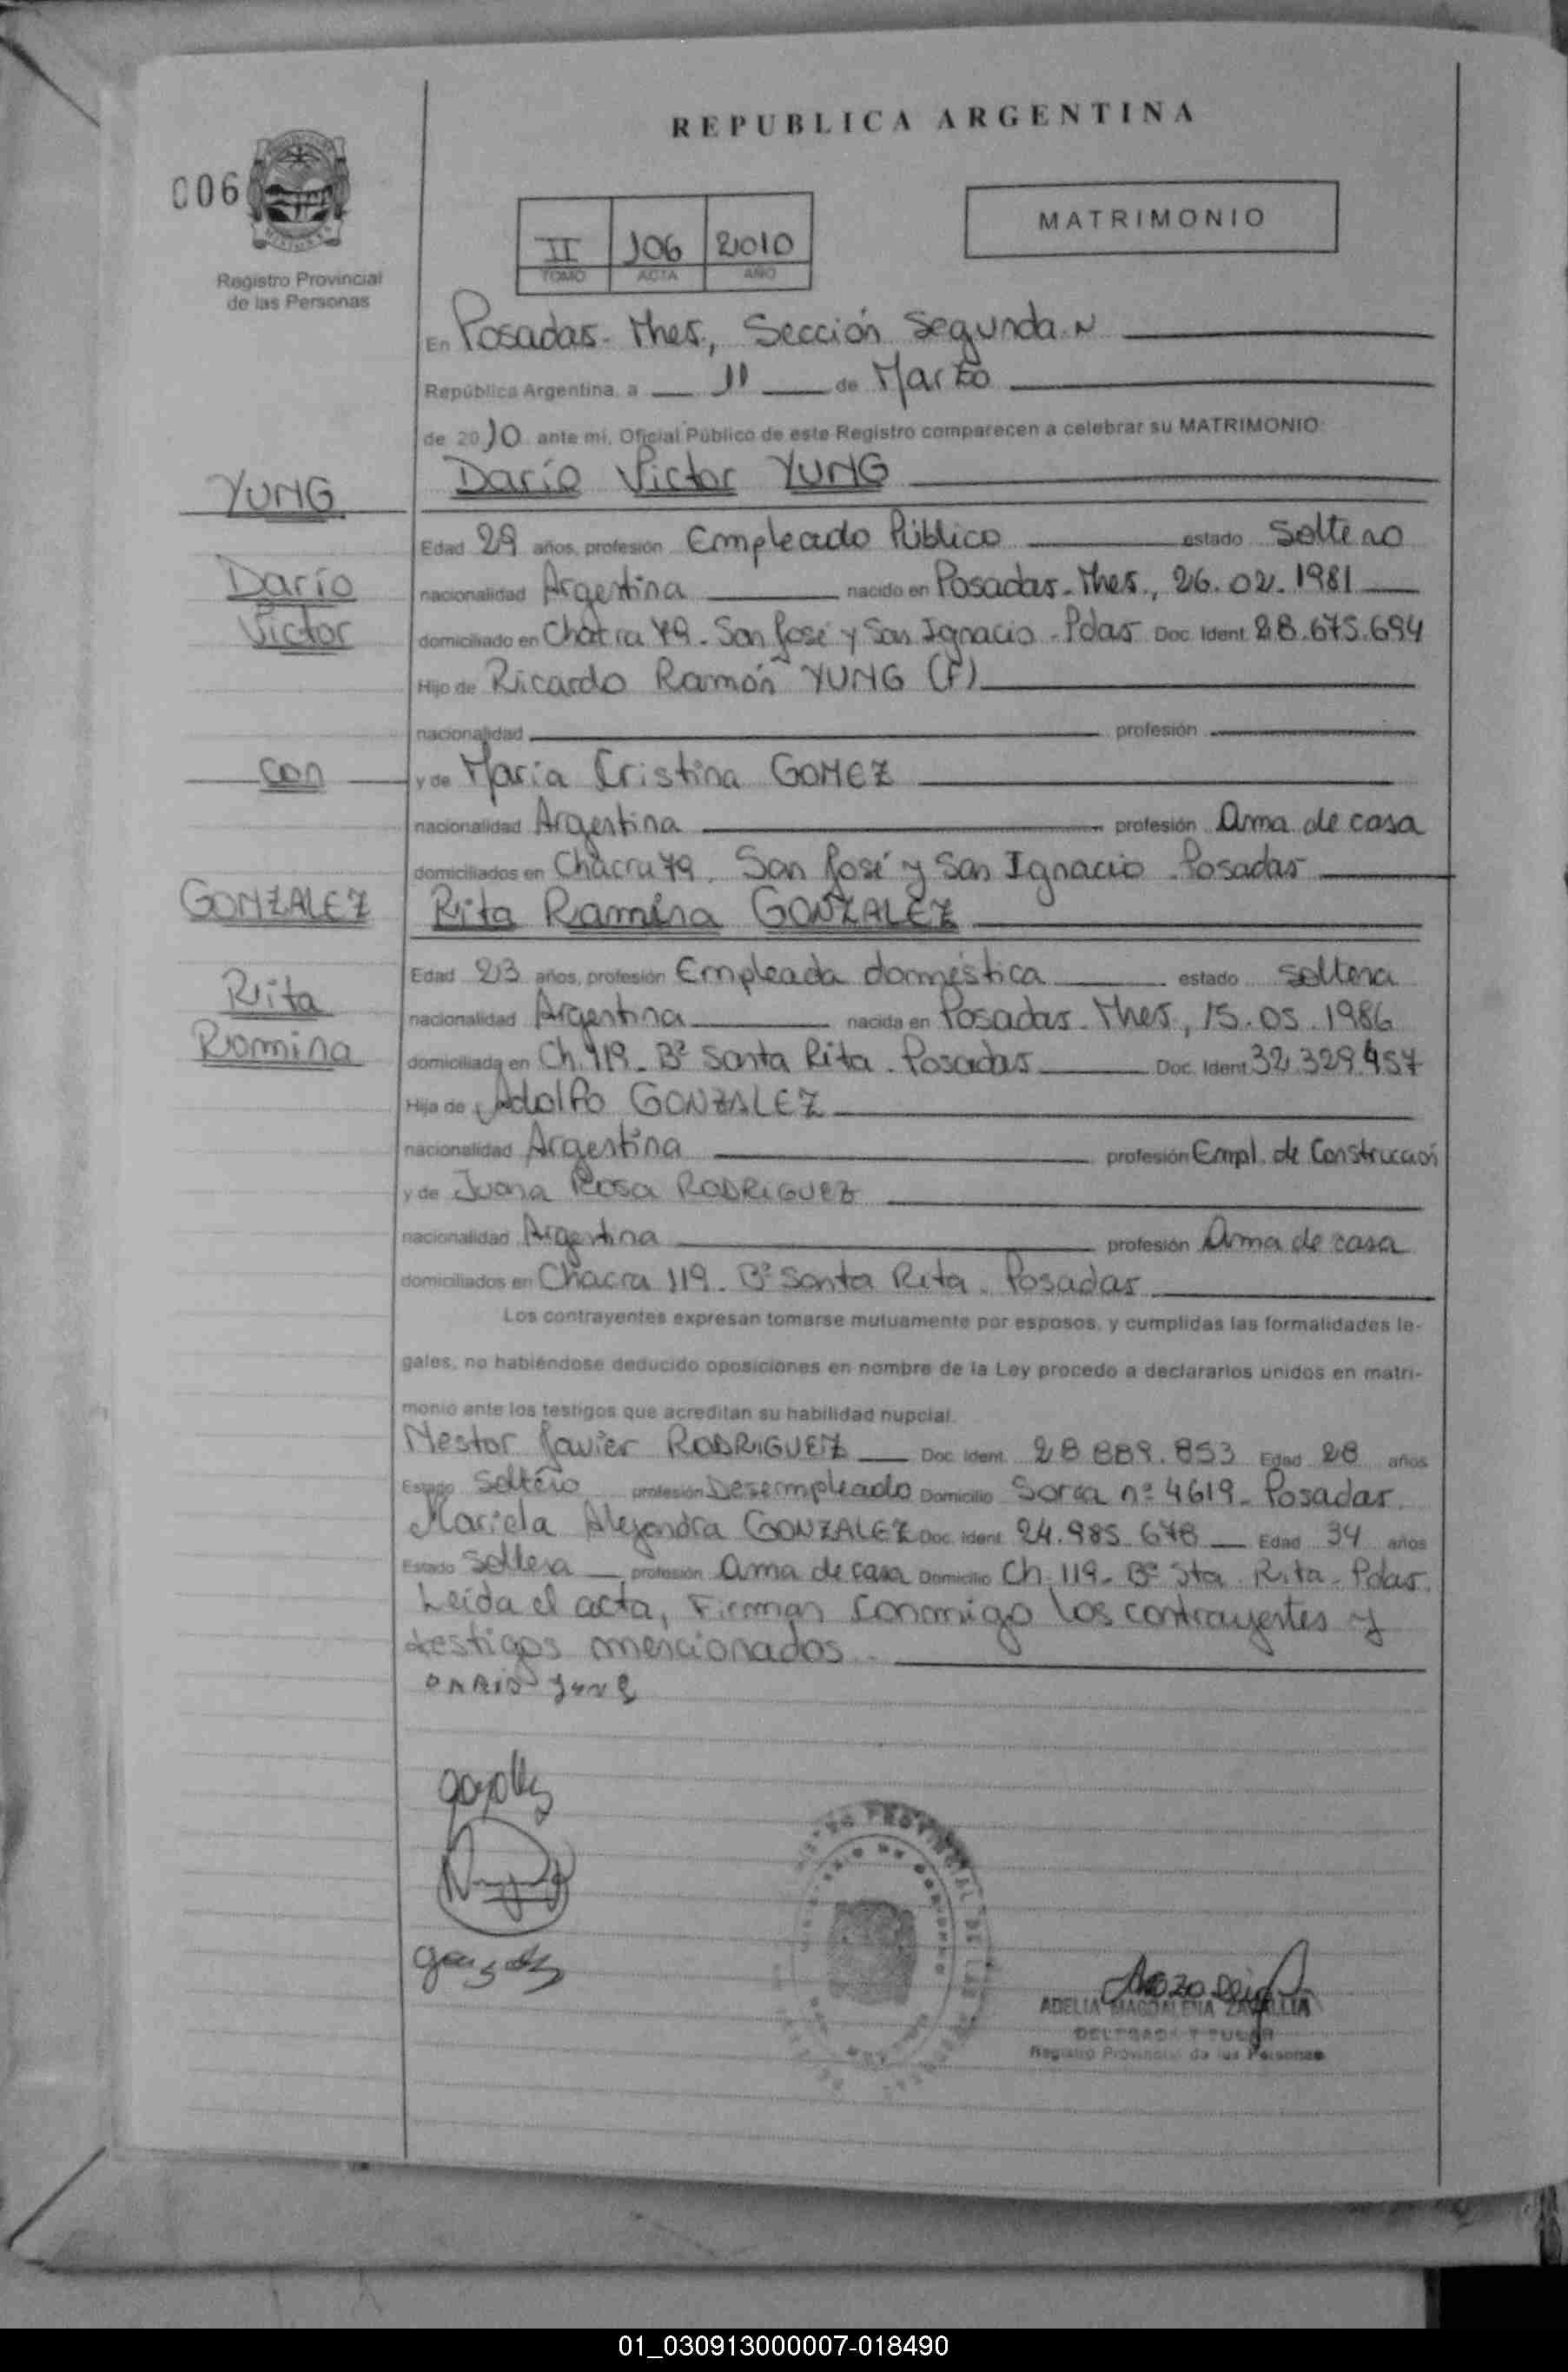 REPUBLICA ARGENTINA
006
MATRIMONIO
II 106 2010
TOMO ACTA AÑO
Registro Provincial
de las Personas
En Posadas - Mnes., Sección Segunda.N
República Argentina, a 11 de Marzo
de 2010 ante mi, Oficial Público de este Registro comparecen a celebrar su MATRIMONIO:
YUNG
Darío Victor YUNG
Edad 29 años, profesión Empleado Público estado Soltero
Darío
nacionalidad Argentina nacido en Posadas - Mnes., 26.02.1981
Victor
domiciliado en Chacra 79 - San José y San Ignacio - Pdas Doc. Ident. 28.675.694
Hijo de Ricardo Ramón YUNG (F)
nacionalidad profesión
con
y de María Cristina GOMEZ
nacionalidad Argentina profesión Ama de casa
domiciliados en Chacra 79. San José y San Ignacio - Posadas
GONZALEZ
Rita Romina GONZALEZ
Edad 23 años, profesión Empleada doméstica estado Soltera
Rita
nacionalidad Argentina nacida en Posadas - Mnes., 15.05.1986
Romina
domiciliada en Ch. 119 - Bº Santa Rita - Posadas Doc. Ident. 32.329.457
Hija de Adolfo GONZALEZ
nacionalidad Argentina profesión Empl. de Construcción
y de Juana Rosa RODRIGUEZ
nacionalidad Argentina profesión Ama de casa
domiciliados en Chacra 119 - Bº Santa Rita - Posadas
Los contrayentes expresan tomarse mutuamente por esposos, y cumplidas las formalidades le-
gales, no habiéndose deducido oposiciones en nombre de la Ley procedo a declararlos unidos en matri-
monio ante los testigos que acreditan su habilidad nupcial.
Nestor Javier RODRIGUEZ Doc. Ident. 28.889.853 Edad 28 años
Estado Soltero profesión Desempleado Domicilio Sorsa nº 4619 - Posadas
Mariela Alejandra GONZALEZ Doc. Ident. 24.985.678 Edad 34 años
Estado Soltera profesión Ama de casa Domicilio Ch. 119 - Bº Sta. Rita - Pdas.
Leída el acta, Firman Conmigo los contrayentes y
testigos mencionados.
DARIO YUNG
PROVINCIAL DE LAS
ADELIA MAGDALENA
DELEGADA TITULAR
Registro Provincial de las Personas
01_030913000007-018490